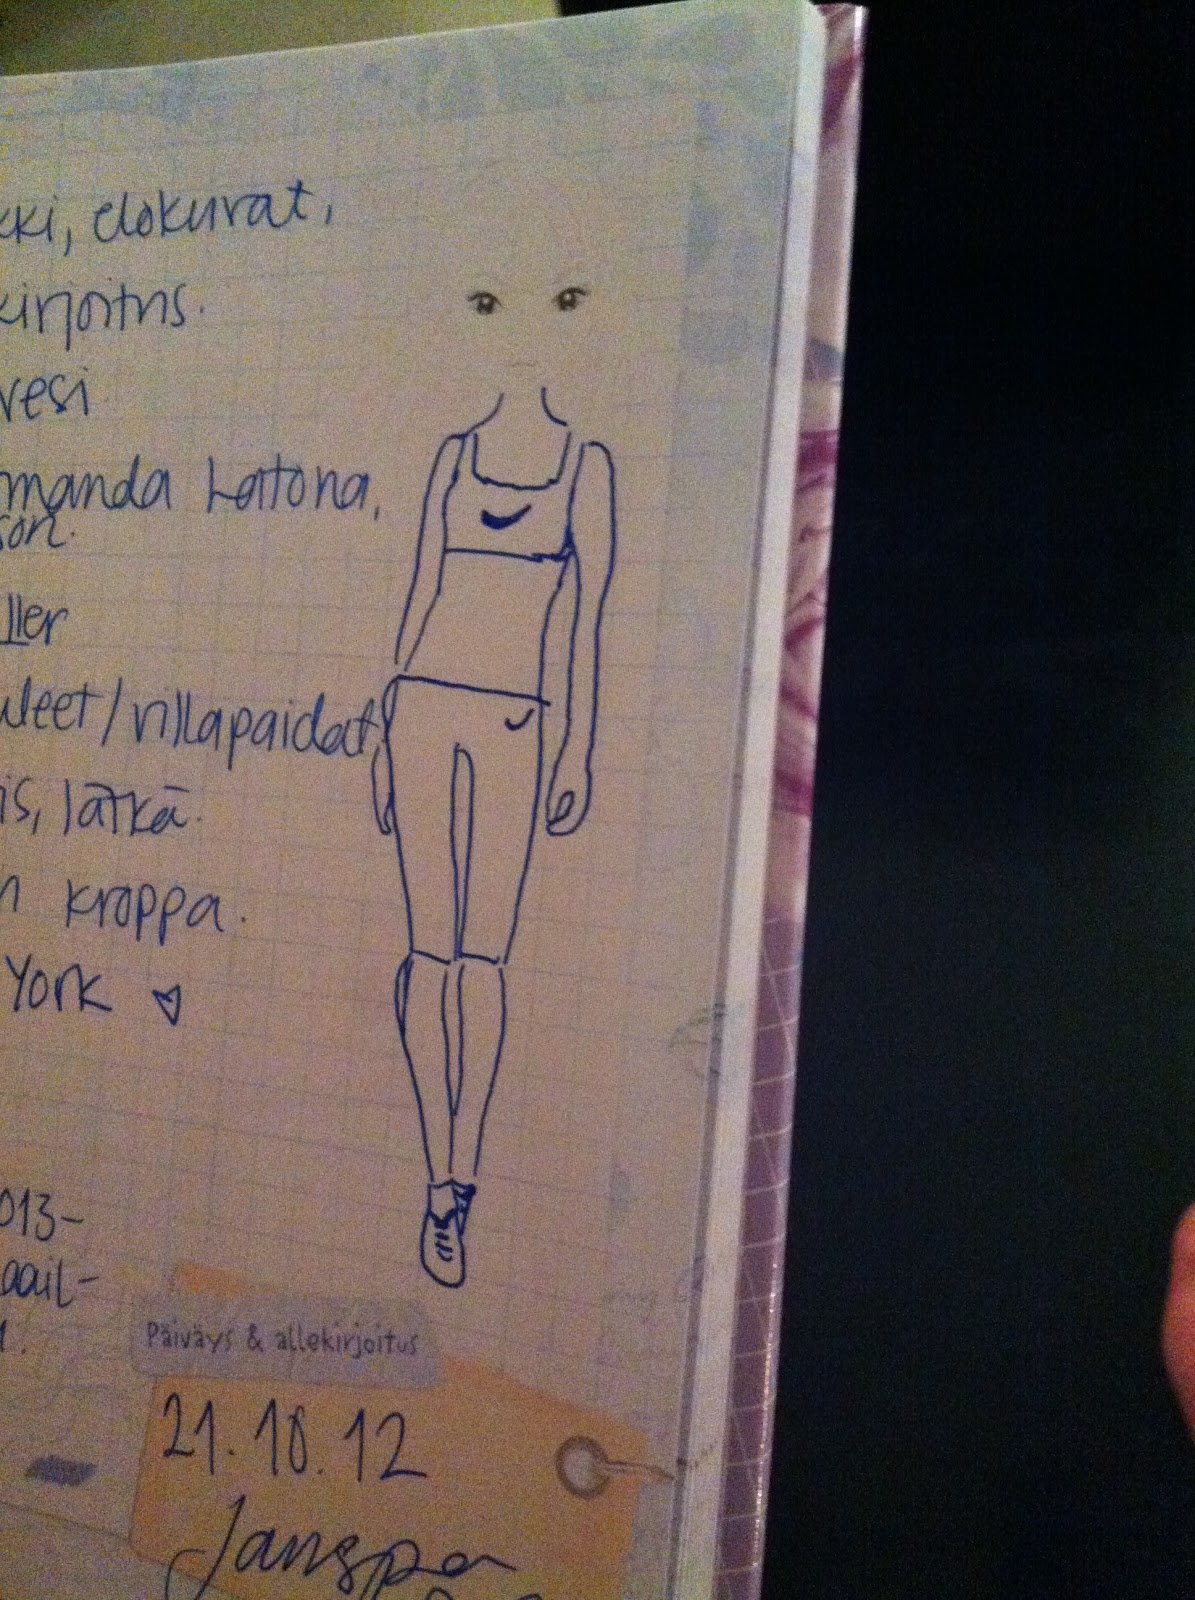 kki, elokuvat,
kirjoitus.
vesi
manda Latona,
son.
ller
uleet/villapaidat
is, lätkä.
n kroppa.
York
013-
aail-
1.
Päiväys & allekirjoitus
21.10.12